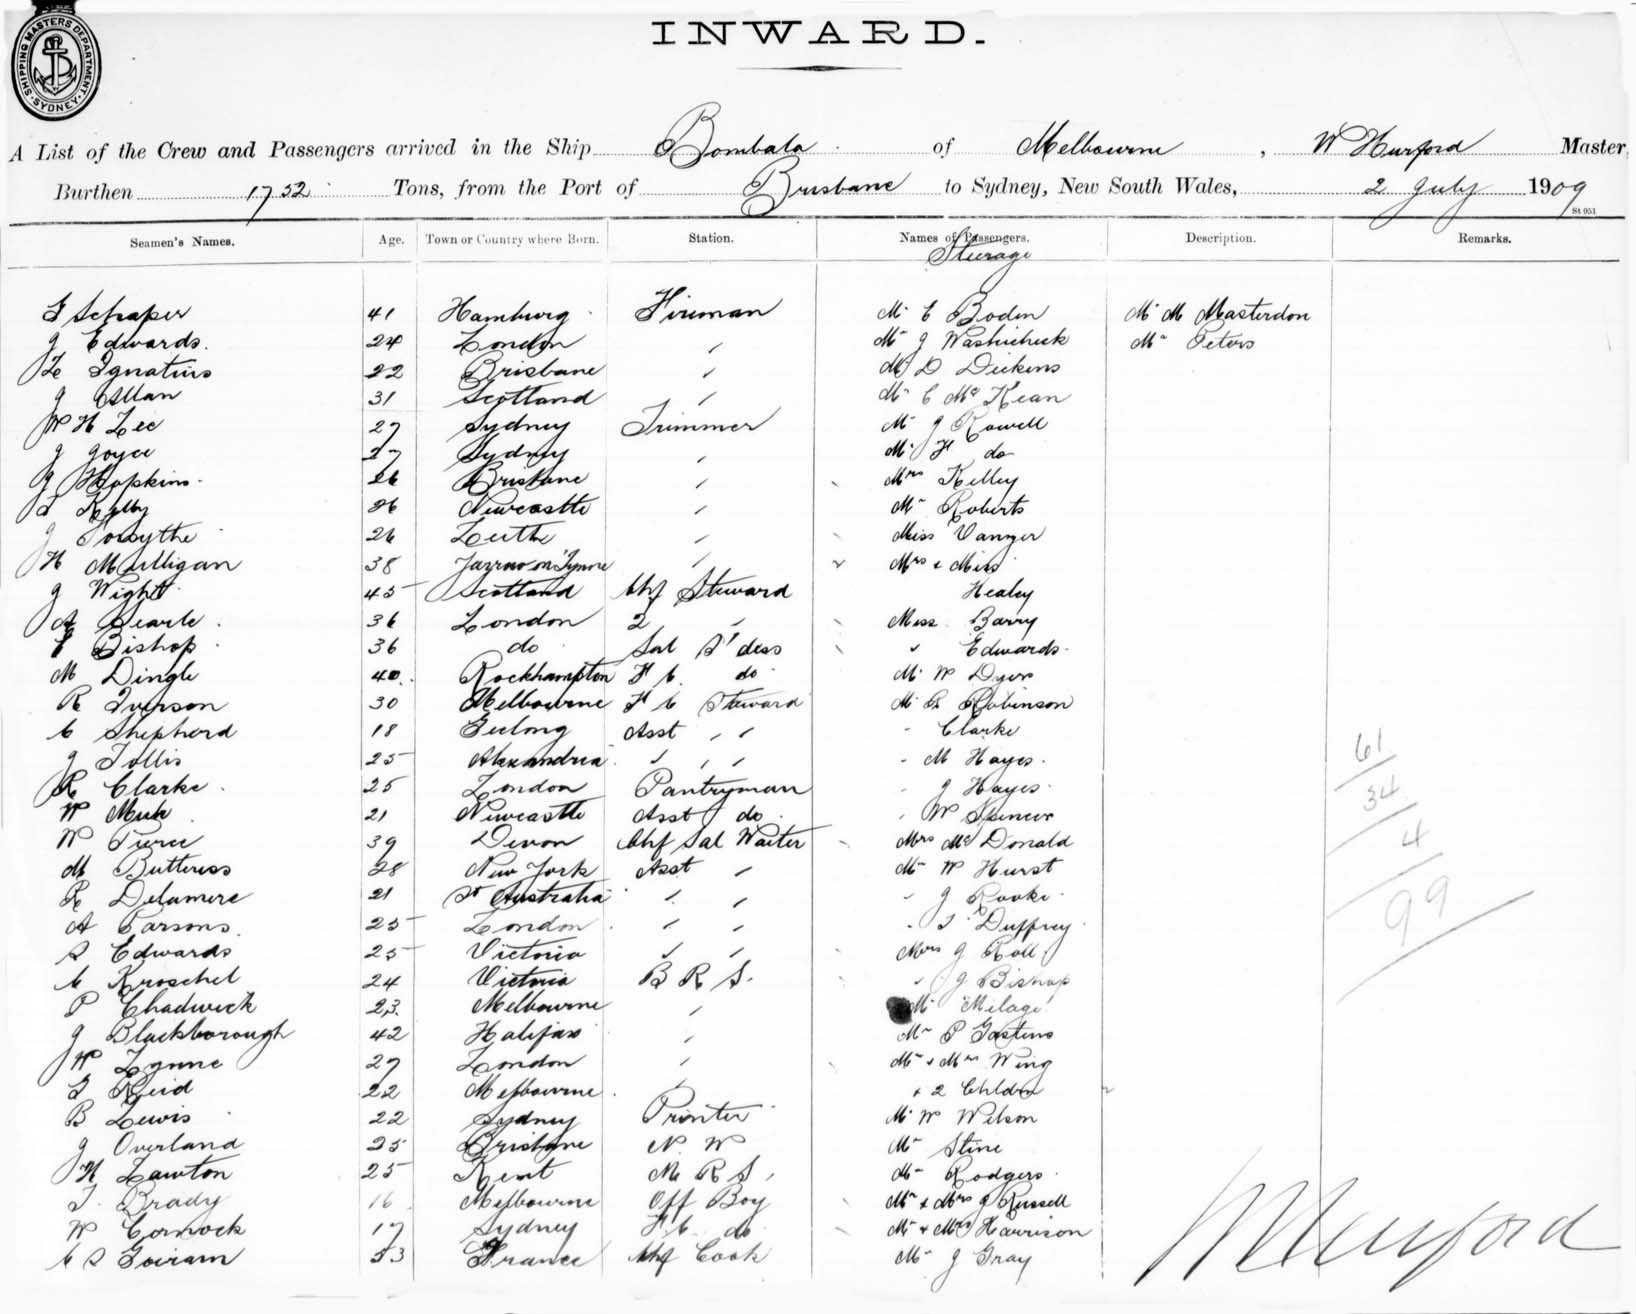 SHIPPING MASTERS DEPARTMENT. SYDNEY.
INWARD.
A List of the Crew and Passengers arrived in the Ship Bombala of Melbourne, W Hurford Master,
Burthen 1752 Tons, from the Port of Brisbane to Sydney, New South Wales, 2 July 1909
St 951
Seamen's Names. Age. Town or Country where Born. Station. Names of Passengers. Description. Remarks.
Steerage
F Schaper 41 Hamburg Fireman Mr C Boden Mr M Masterdon
J Edwards 24 London " Mr J Mr Peters
Ignatius 22 Brisbane " D Dickens
J Allan 31 Scotland " Mr C Mc Kean
W H Lee 27 Sydney Trimmer Mr J Rowell
J Joyce 27 Sydney " Mr H do
J Hopkins 26 Brisbane " Mrs Kelley
Kelly 26 Newcastle " Mr Roberts
J Forsythe 26 Leith " Miss Vanger
H Mulligan 38 Jarrow on Tyne " Mrs & Miss
J Wight 45 Scotland Chf Steward Healey
A Searle 36 London 2 " Miss Barry
E Bishop 36 do Sal St dess " Edwards
M Dingle 40 Rockhampton F C do Mr W Dyer
R Iverson 30 Melbourne F C Steward Mr R Robinson
C Shepherd 18 Geelong Asst " " " Clarke
J Tollis 25 Alexandria " " " " M Hayes
R Clarke 25 London Pantryman " J Hayes
W 21 Newcastle Asst do " W Spencer
W Pierce 39 Devon Chf Sal Waiter Mrs Mc Donald
M Buttress 28 New York Asst " Mr W Hurst
R Delamere 21 St Australia " " " J Rooke
A Parsons 25 London " " " T Duffrey
S Edwards 25 Victoria " " Mrs J Roll
C Kroschel 24 Victoria B R S. " J Bishop
P Chadwick 23 Melbourne " Mr Milage
J Blackborough 42 Halifax " Mr P Gastins
W Lynne 27 London " Mr & Mrs Wing
G Reid 22 Melbourne " & 2 Childn
B Lewis 22 Sydney Printer Mr W Wilson
J Overland 25 Brisbane N. W Mr Stine
H Lawton 25 Kent M R S, Mr Rodgers
T. Brady 16 Melbourne Off Boy Mr & Mrs J Russell
W Cornock 17 Sydney F C do Mr & Mrs Harrison
C S Goiram 53 France Chf Cook Mr J Gray
61
34
4
99
W Hurford